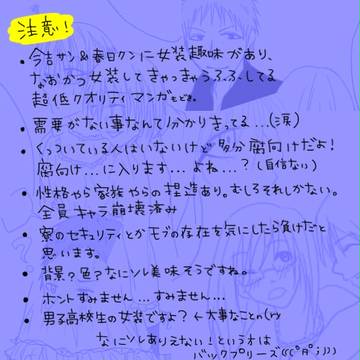 注意!
• 今吉サン&春日クンに女装趣味があり、
なおかつ女装してきゃっきゃうふふしてる
超低クオリティマンガもどき。
• 需要がない事なんて分かりきってる…(涙)
• くっついている人はいないけど多分腐向けだよ!
腐向け…に入ります…よね…?(自信ない)
• 性格やら家族やらの捏造あり。むしろそれしかない。
全員キャラ崩壊済み
• 寮のセキュリティとかモブの存在を気にしたら負けだと
思います。
• 背景?色?なにソレ美味そうですね。
• ホントすみません…すみません…
• 男子高校生の女装ですよ?←大事なことn(ry
なにソレありえない!という方は
バックプリーズ(((゜Д゜;)))